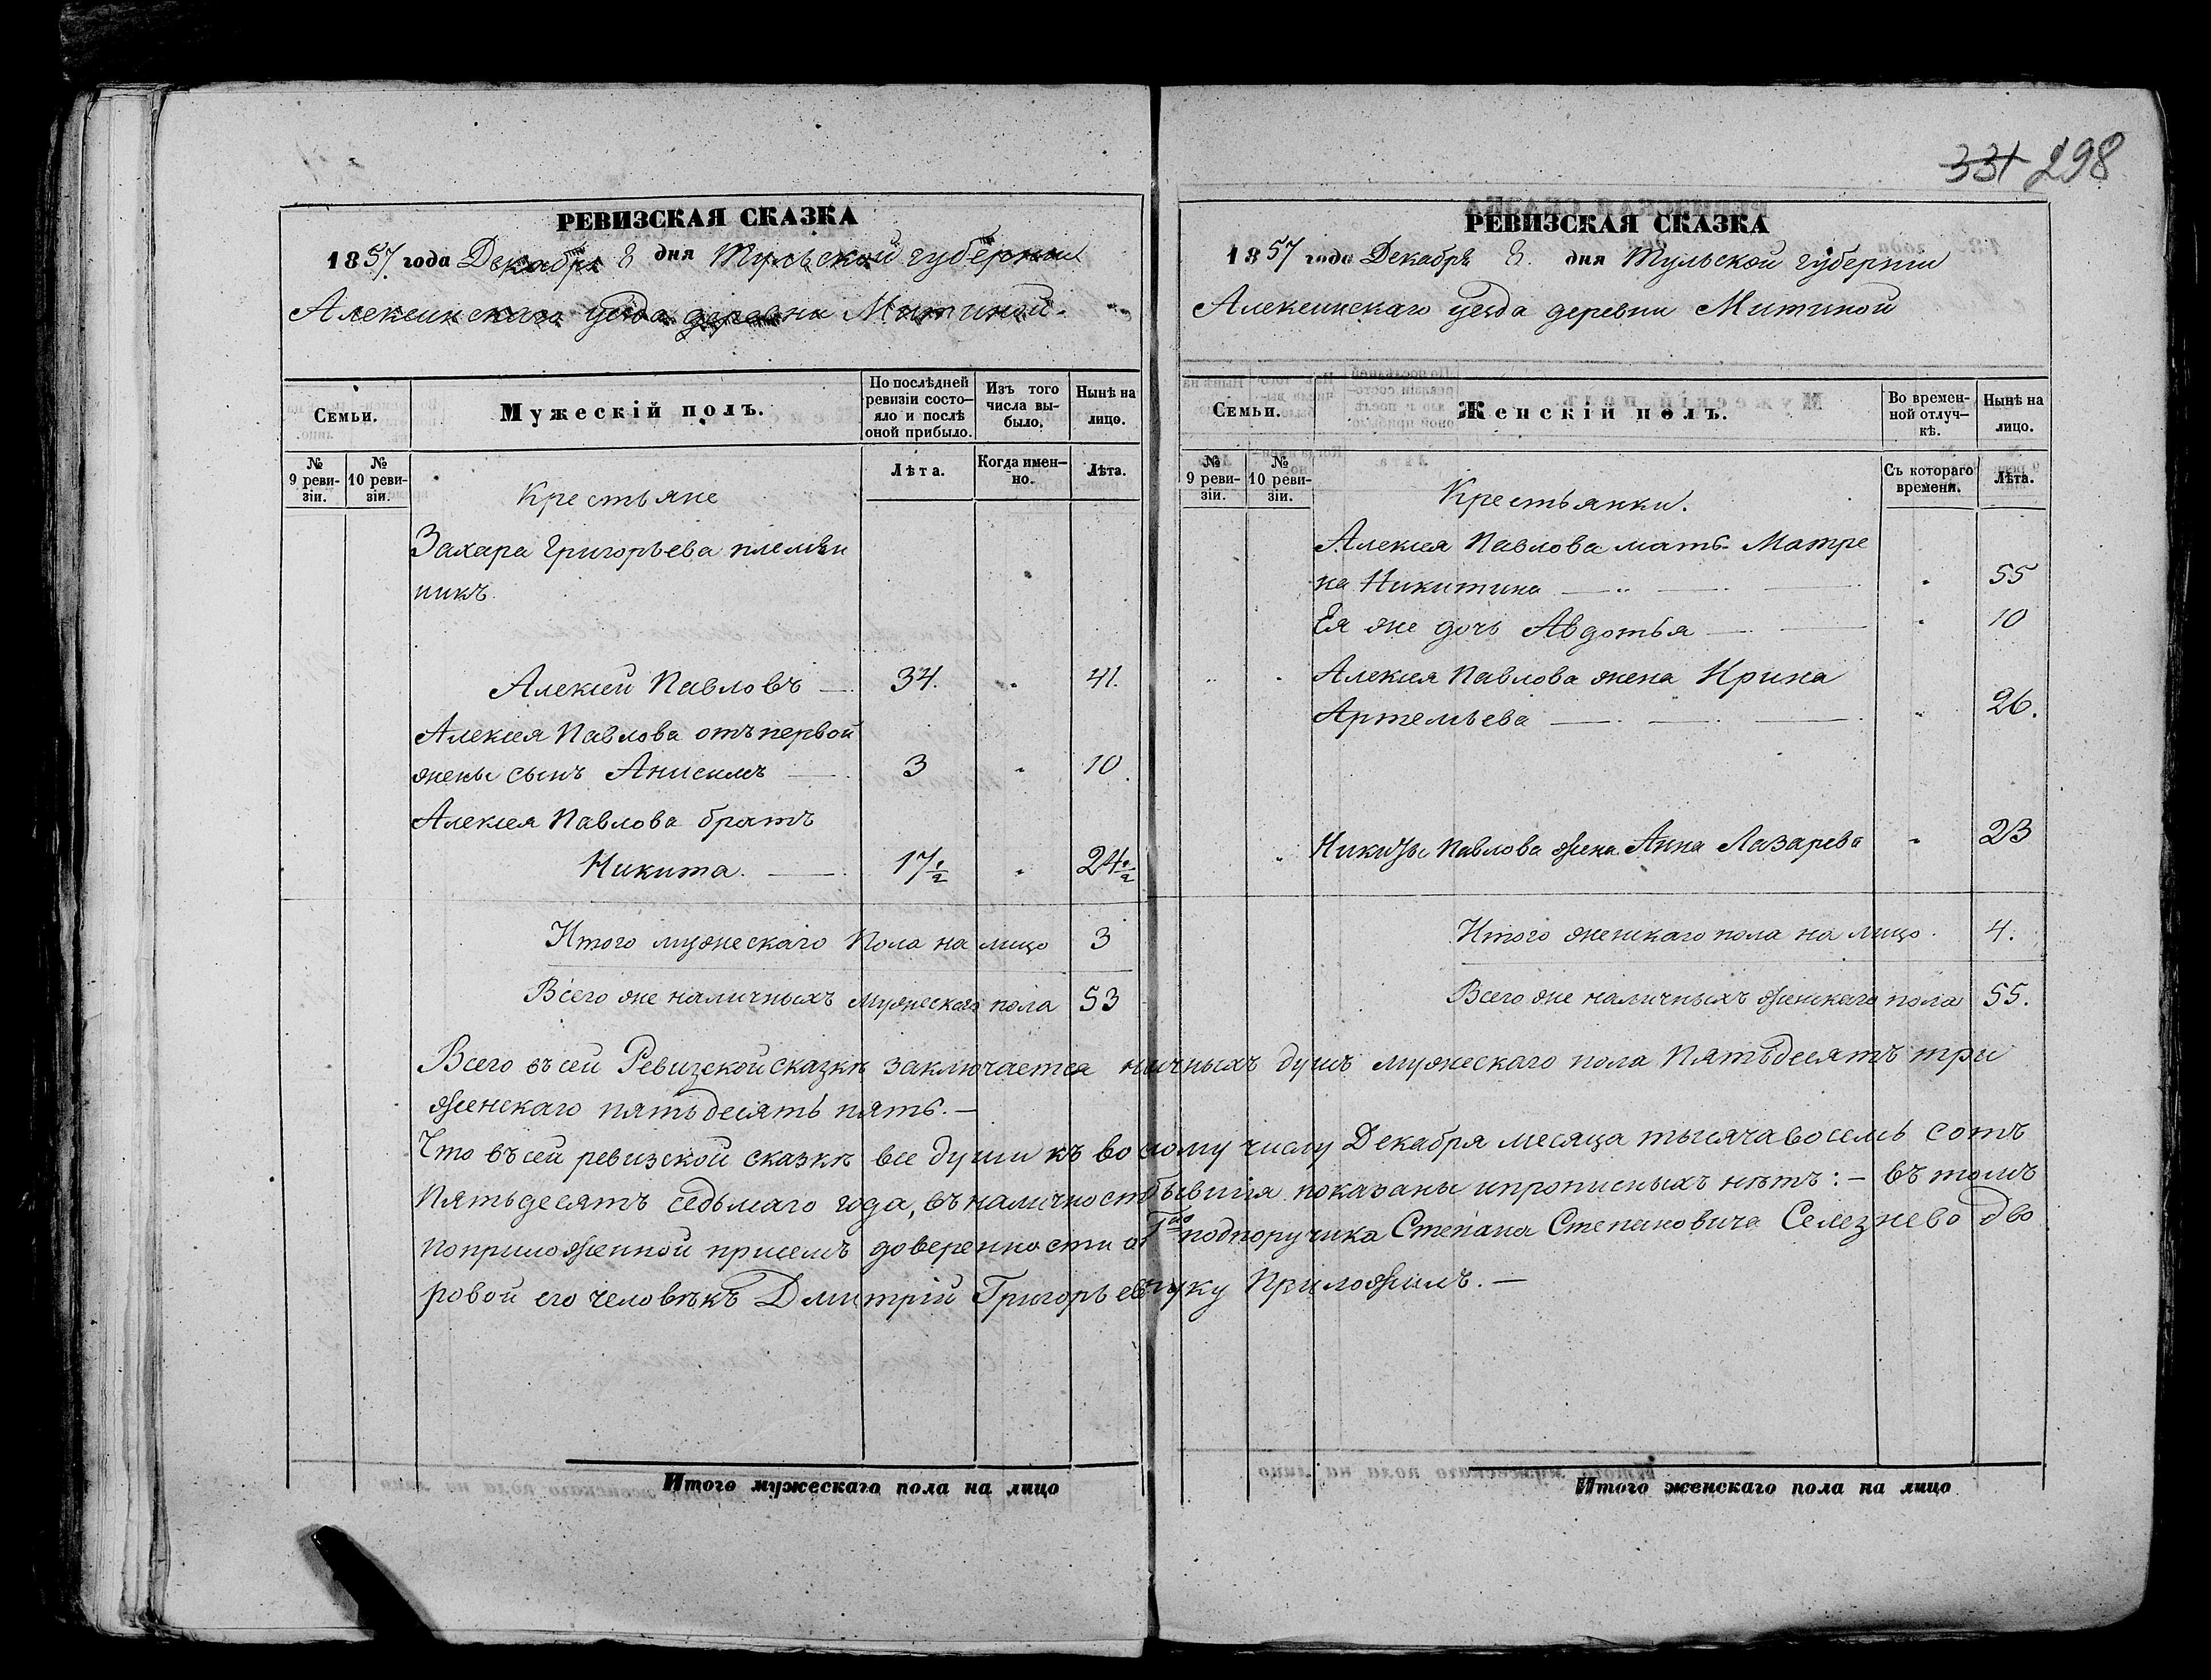 331 298
РЕВИЗСКАЯ СКАЗКА
1857 года Декабря 8 дня Тульской губернии
Алексинскаго уезда деревни Митиной
Семьи.
Мужескій полъ.
По послѣдней ревизіи состояло и послѣ оной прибыло.
Изъ того числа выбыло.
Нынѣ на лицо.
№ 9 ревизіи.
№ 10 ревизіи.
Лѣта.
Когда именно.
Лѣта.
Крестьяне
Захара Григорьева племян
никъ
Алексей Павловъ — 34. " 41.
Алексея Павлова отъ первой
жены сынъ Анисимъ — 3 " 10
Алексея Павлова братъ
Никита. — 17 1/2 " 24 1/2
Итого мужескаго пола на лицо 3
Всего же наличныхъ мужескаго пола 53
РЕВИЗСКАЯ СКАЗКА
1857 года Декабря 8. дня Тульской губернии
Алексинскаго уезда деревни Митиной
Семьи.
Женскій полъ.
Во временной отлучкѣ.
Нынѣ на лицо.
№ 9 ревизіи.
№ 10 ревизіи.
Съ котораго времени.
Лѣта.
Крестьянки.
Алексея Павлова мать Матре
на Никитина — " 55
Ея же дочь Авдотья — " 10
Алексея Павлова жена Ирина
Артемьева — " 26.
Никиты Павлова жена Анна Лазарева " 23
Итого женскаго пола на лицо. 4.
Всего же наличныхъ женскаго пола 55.
Всего въ сей Ревизской сказкѣ заключается ничныхъ душъ мужескаго пола Пятьдесятъ три
женскаго пятьдесятъ пять. —
Что въ сей ревизской сказкѣ все души къ восмому числу Декабря месяца тысяча восемь сотъ
Пятьдесятъ седьмаго года, въ наличност бывшія показаны и прописныхъ нѣтъ: — въ томъ
по приложенной присемъ доверенности от Гна подпоручика Степана Степановича Селезнево дво
ровой его человѣкъ Дмитрій Григорьев руку Приложилъ. —
Итого мужескаго пола на лицо
Итого женскаго пола на лицо